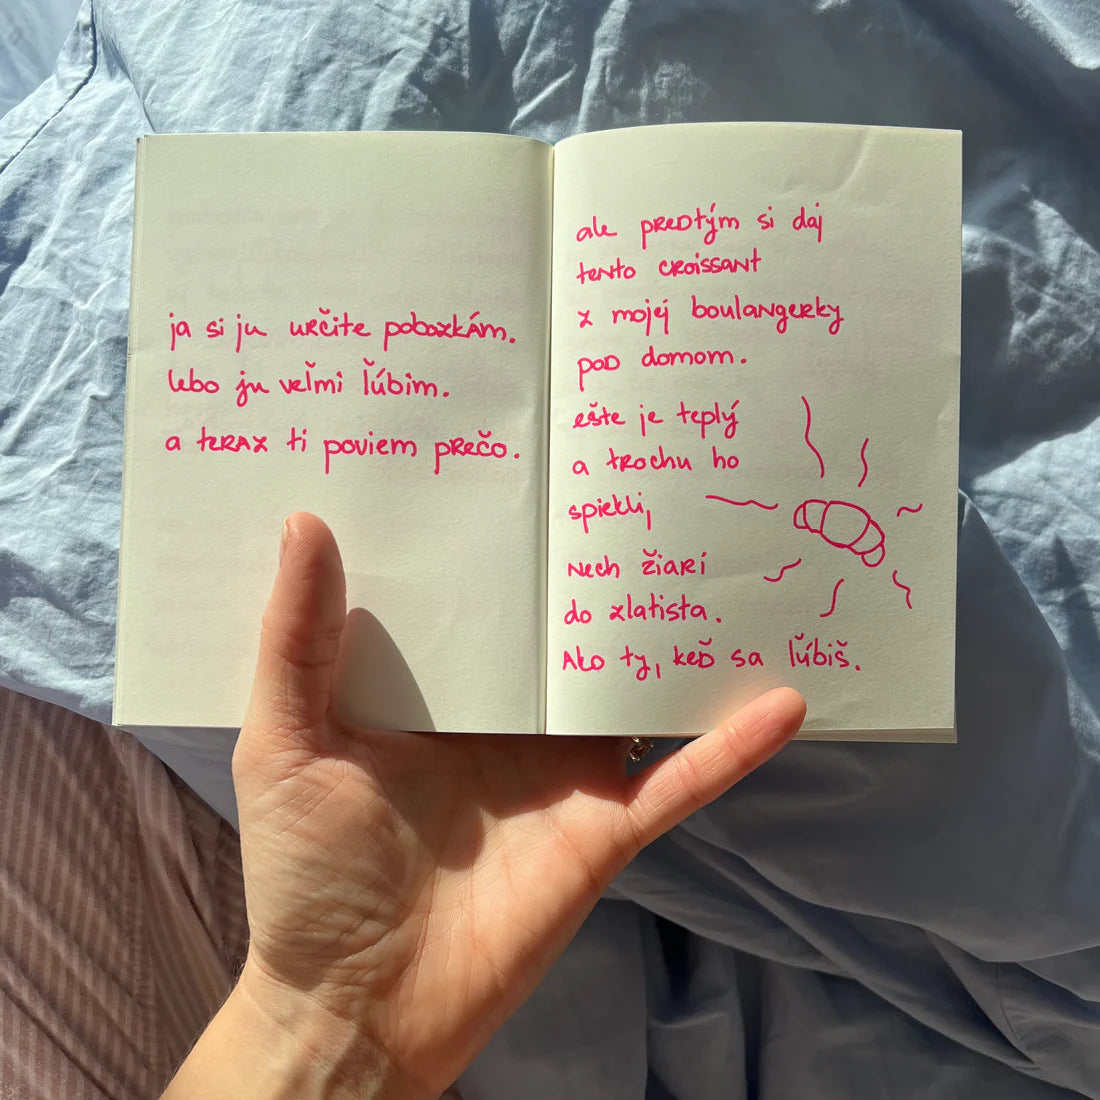 ja si ju určite pobozkám.
lebo ju veľmi ľúbim.
a teraz ti poviem prečo.
ale predtým si daj
tento croissant
z mojej boulangerky
pod domom.
ešte je teplý
a trochu ho
spiekli,
nech žiari
do zlatista.
Ako ty, keď sa ľúbiš.